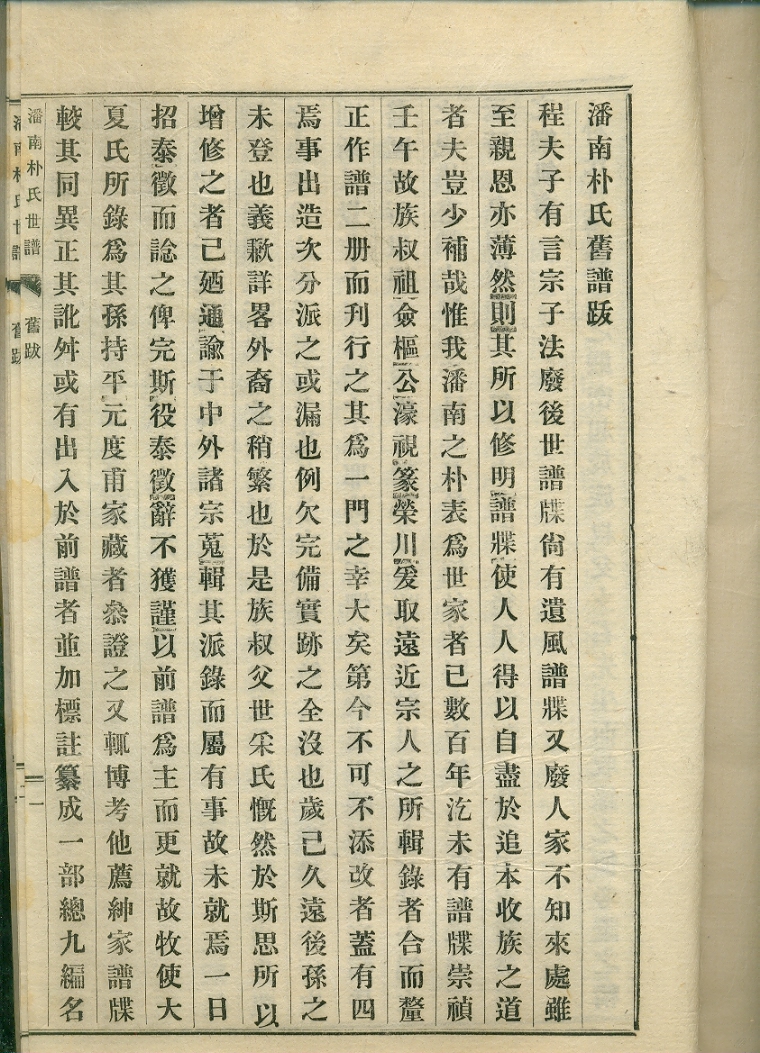 潘南朴氏舊譜跋
程夫子有言宗子法廢後世譜牒尙有遺風譜牒又廢人家不知來處雖
至親恩亦薄然則其所以修明譜牒使人人得以自盡於追本收族之道
者夫豈少補哉惟我潘南之朴表爲世家者已數百年汔未有譜牒崇禎
壬午故族叔祖僉樞公濠視篆榮川爰取遠近宗人之所輯錄者合而釐
正作譜二册而刊行之其爲一門之幸大矣第今不可不添改者蓋有四
焉事出造次分派之或漏也例欠完備實跡之全沒也歲已久遠後孫之
未登也義歉詳畧外裔之稍繁也於是族叔父世采氏慨然於斯思所以
增修之者已廼通諭于中外諸宗蒐輯其派錄而屬有事故未就焉一日
招泰徵而諗之俾完斯役泰徵辭不獲謹以前譜爲主而更就故牧使大
夏氏所錄爲其孫持平元度甫家藏者叅證之又輒博考他薦紳家譜牒
較其同異正其訛舛或有出入於前譜者並加標註纂成一部總九編名
潘南朴氏世譜 舊跋 一
潘南朴氏世譜 舊跋